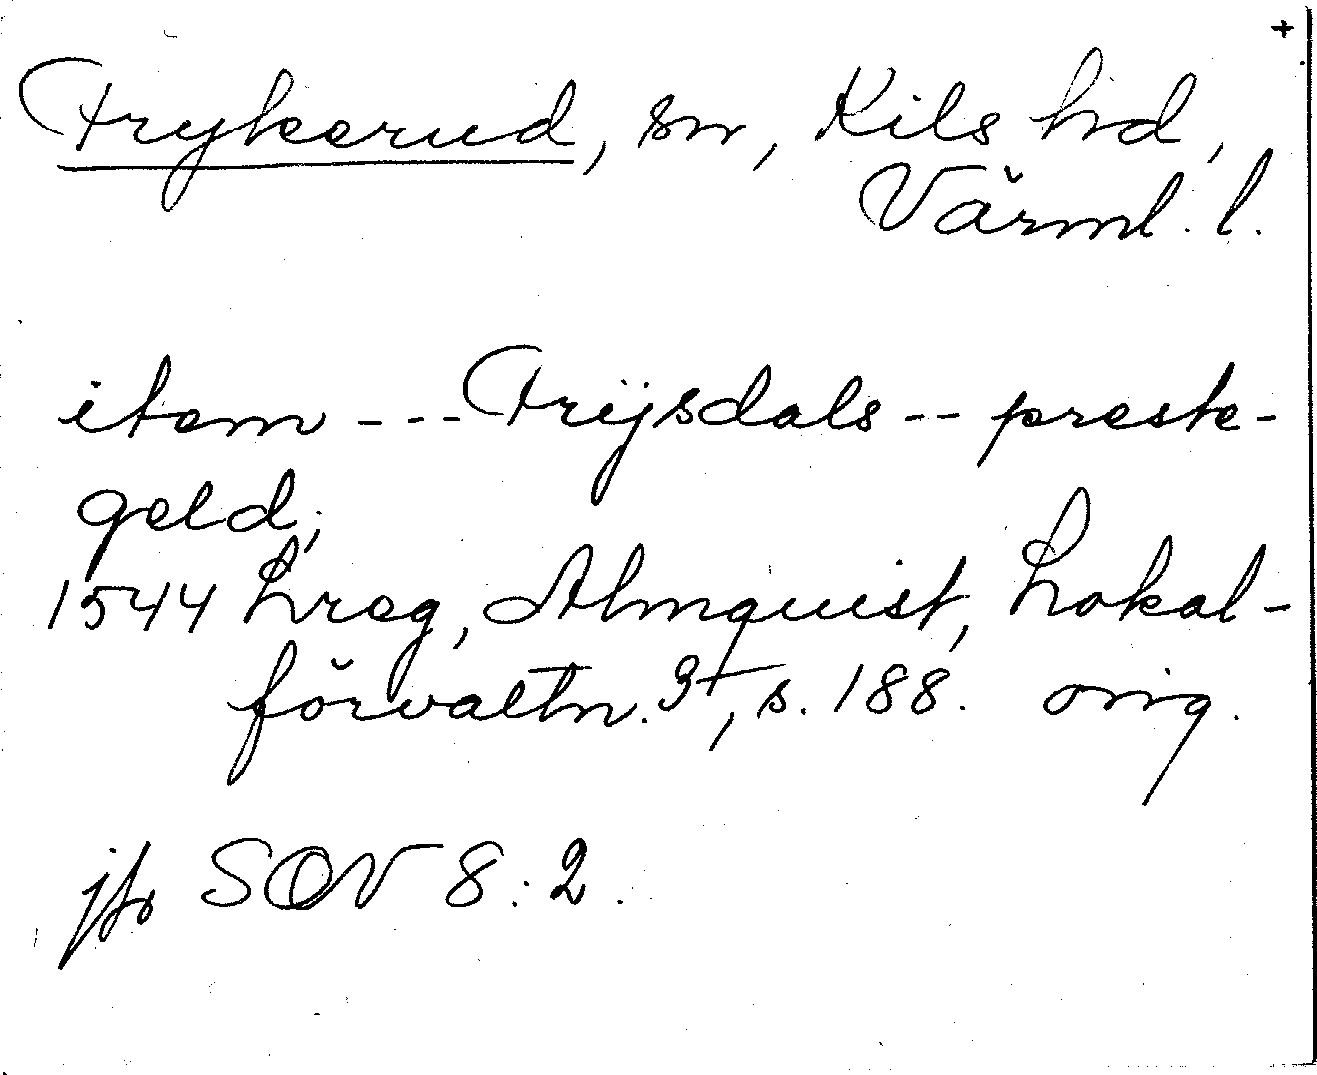 +
Frykerud, sn, Kils hd,
Värml. l.
item --- Frijsdals -- preste-
geld;
1544 Lreg, Almquist, Lokal-
förvaltn. 3†, s. 188. orig.
jfr SOV 8:2.